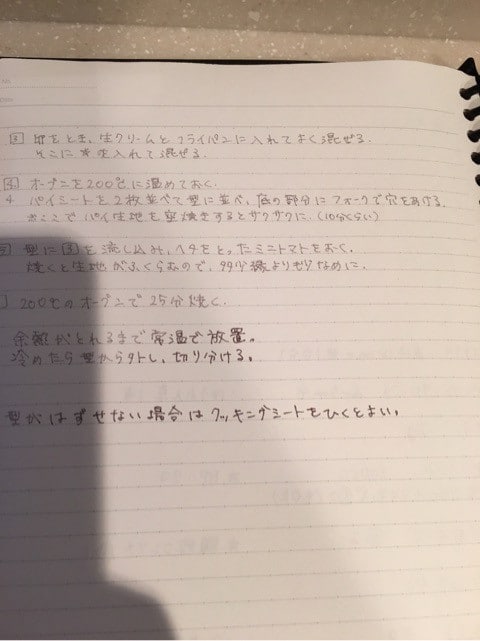 ③ 卵をとき、生クリームとフライパンに入れてよく混ぜる。
そこに＊を入れて混ぜる。
④ オーブンを200℃に温めておく。
4. パイシートを2枚並べて型に並べ、底の部分にフォークで穴をあける。
※ここでパイ生地を空焼きするとサクサクに。(10分くらい)
型に③を流し込み、ヘタをとったミニトマトをおく。
焼くと生地がふくらむので、
200℃のオーブンで25分焼く。
余熱がとれるまで常温で放置。
冷めたら型から外し、切り分ける。
型がはずせない場合はクッキングシートをひくとよい。